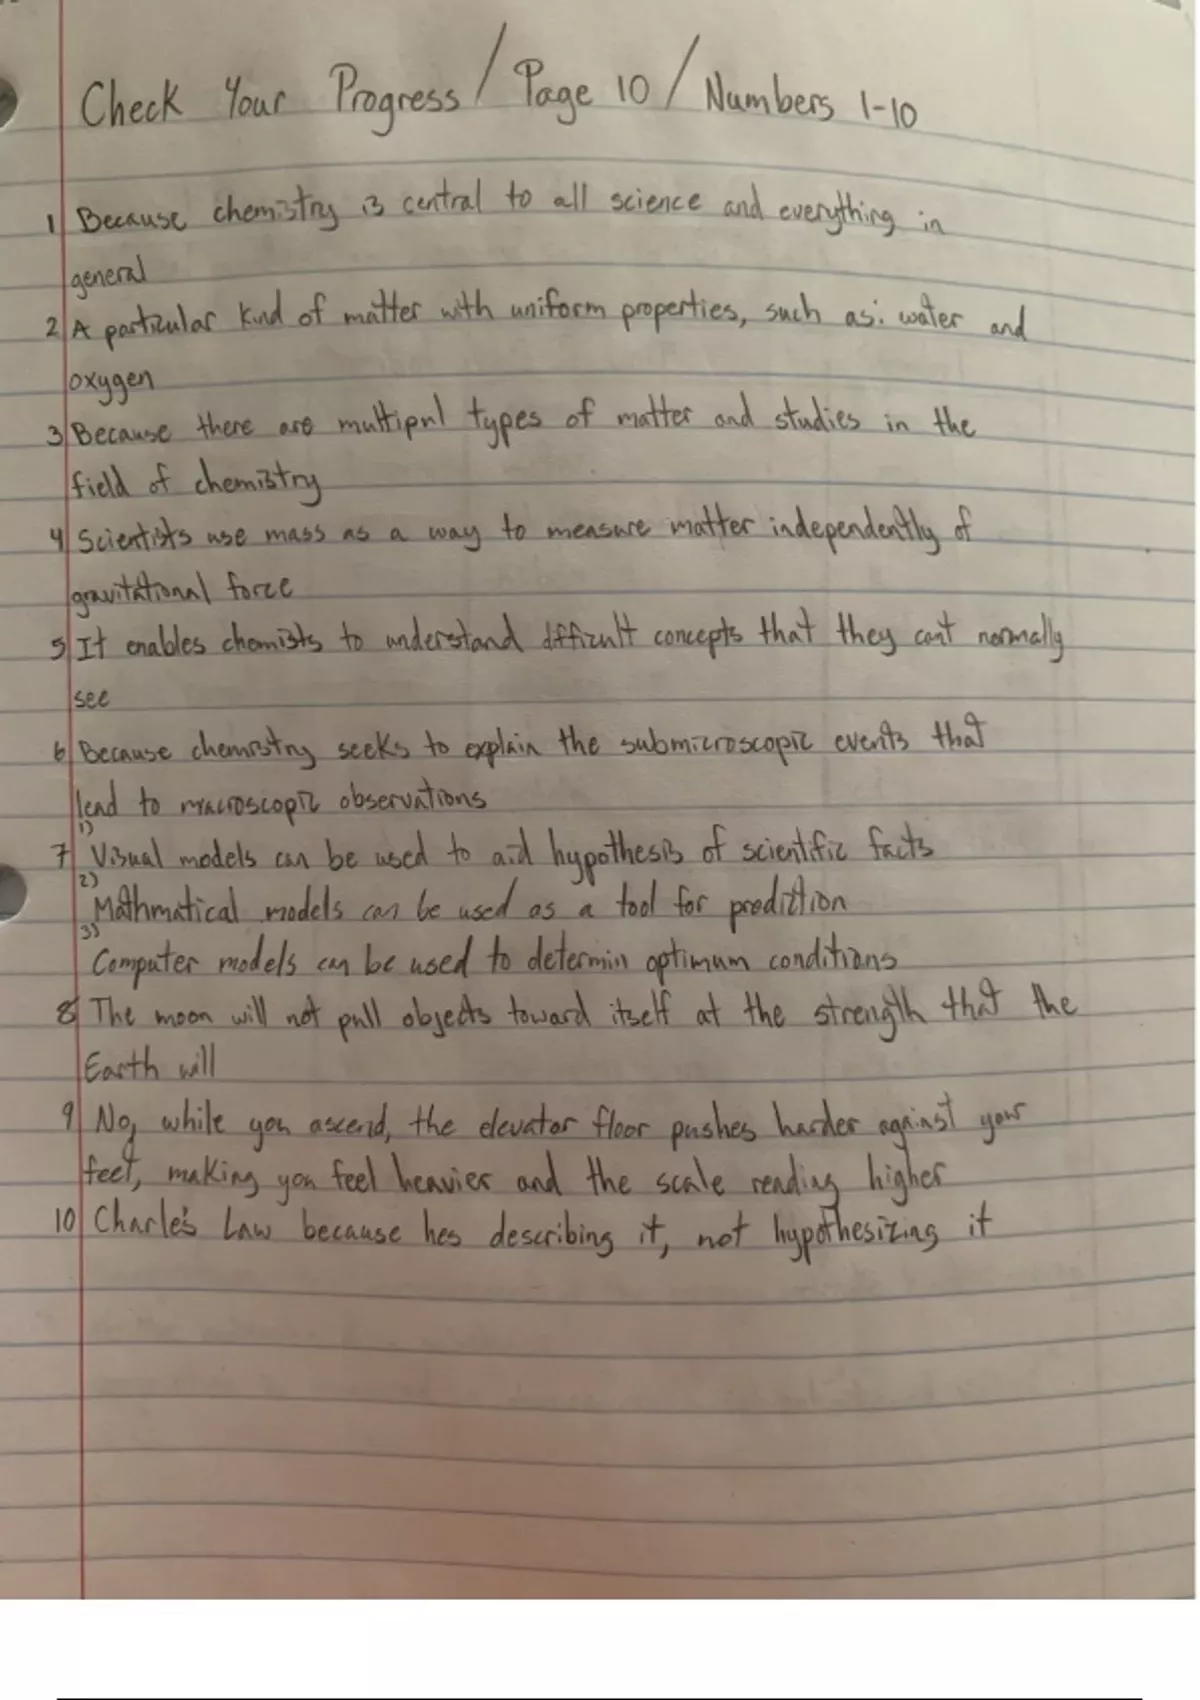 Check Your Progress / Page 10 / Numbers 1-10
1 Because chemistry is central to all science and everything in
general
2 A particular kind of matter with uniform properties, such as: water and
oxygen
3 Because there are multipul types of matter and studies in the
field of chemistry
4 Scientists use mass as a way to measure matter independently of
gravitational force
5 It enables chemists to understand difficult concepts that they cant normally
see
6 Because chemistry seeks to explain the submicroscopic events that
lead to macroscopic observations
7 1) Visual models can be used to aid hypothesis of scientific facts
2) Mathmatical models can be used as a tool for prediction
3) Computer models can be used to determin optimum conditions
8 The moon will not pull objects toward itself at the strength that the
Earth will
9 No, while you ascend, the elevator floor pushes harder against your
feet, making you feel heavier and the scale reading higher
10 Charle's Law because hes describing it, not hypothesizing it